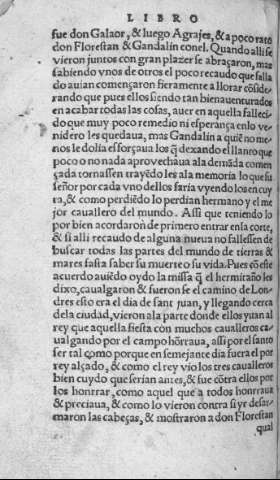 LIBRO
fue don Galaor, & luego Agrajes, & a poco rato
don Florestan & Gandalin conel. Quando alli se
vieron juntos con gran plazer se abraçaron, mas
sabiendo vnos de otros el poco recaudo que falla
do auian començaron fieramente a llorar cõside
rando que pues ellos siendo tan bienauenturados
en acabar todas las cosas, auer en aquella falleci
do que muy poco remedio ni esperança enlo ve
nidero les quedaua, mas Gandalin a quiẽ no me
nos le dolia esforçaua los q̃ dexando el llanto que
poco o no nada aprouechaua ala demãda comen
çada tornassen trayẽdo les ala memoria lo que su
señor por cada vno dellos faria vyendo los en cuy
ta, & como perdiẽdo lo perdian hermano y el me
jor cauallero del mundo. Assi que teniendo lo
por bien acordaron de primero entrar enla corte,
& si alli recaudo de alguna nueua no fallessen de
buscar todas las partes del mundo de tierras &
mares fasta saber su muerte o su vida. Pues cõ este
acuerdo auiẽdo oydo la missa q̃ el hermitaño les
dixo, caualgaron & fueron se el camino de Lon
dres esto era el dia de sant juan, y llegando cerca
dela ciudad, vieron ala parte donde ellos yuan al
rey que aquella fiesta con muchos caualleros ca
ualgando por el campo hõrraua, assi por el santo
ser tal como porque en semejante dia fuera el por
rey alçado, & como el rey vio los tres caualleros
bien cuydo que serian antes, & fue cõtra ellos por
los honrrar, como aquel que a todos honrraua
& preciaua, & como lo vieron contra si yr desar
maron las cabeças, & mostraron a don Florestan
qual